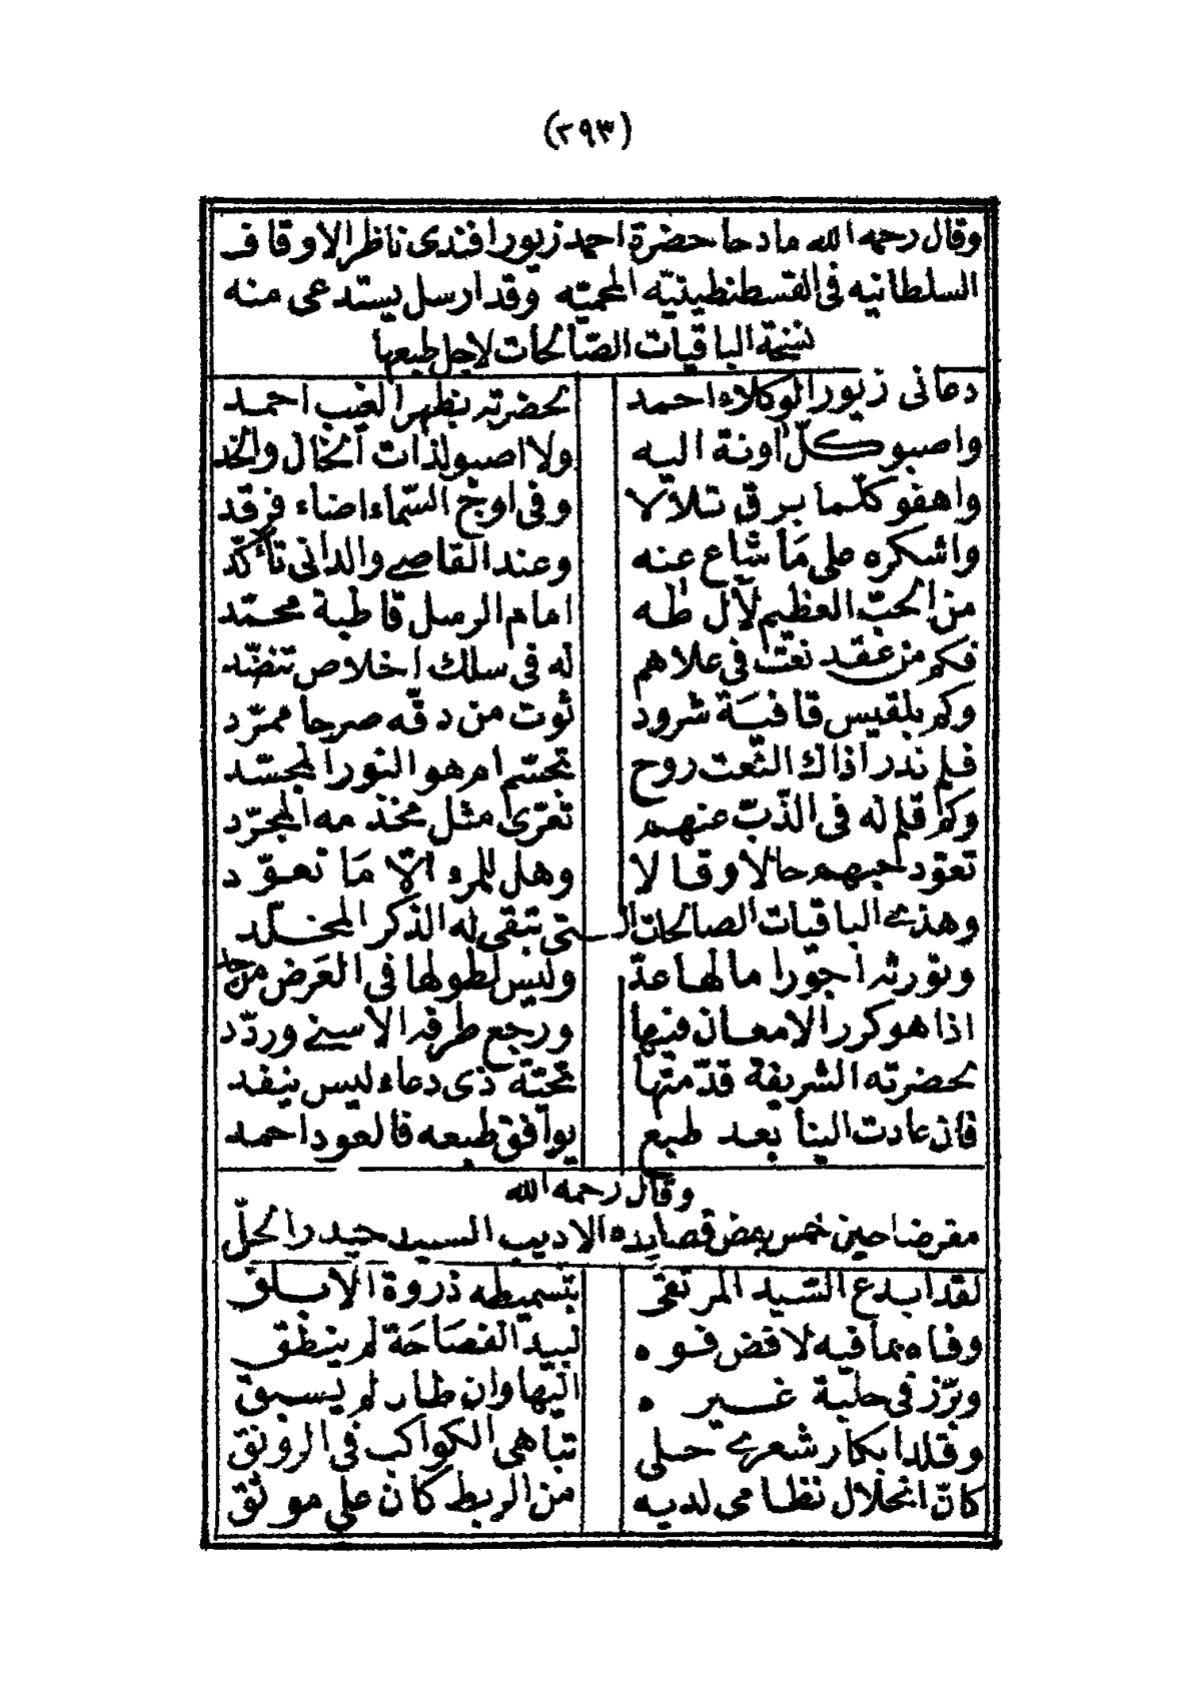 (٢٩٣)
وقال رحمه الله مادحا حضرة احمد زيور افندى ناظر الاوقاف
السلطانيه فى القسطنطينيّه المحميّه وقد ارسل يستدعى منه
نسخة الباقيات الصّالحات لاجل طبعها
دعانى زيور الوكلاء احمد بحضرته بظهر الغيب احمد
واصبو كلّ اونة اليه ولا اصبو لذات الخال والخد
واهفو كلّما برق تلألا وفى اوج السّماء اضاء فرقد
واشكره على مَا شاع عنه وعند القاصے والدانى تأكّد
من الحبّ العظيم لآل طٰه امام الرسل قاطبة محمّد
فكم من عقد نعت فى علاهم له فى سلك اخلاص تنضّد
وكم بلقيس قافيَة شرود ثوت من دقّه صرحا ممرّد
فلم ندر اذاك النّعت روح تجسّم ام هو النور المجسّد
وكم قلم له فى الذّبّ عنهم تعرّى مثل مخذمه المجرّد
تعوّد حبهم حالا وقالا وهل للمرء الّا مَا تعوّد
وهذے الباقيات الصالحات الـتى تبقى له الذكر المخلّد
وتورثه اجورا ما لها عدّ وليس لطولها فى العَرض من حد
اذا هو كرر الامعان فيها ورجع طرفه الاسنے وردّد
بحضرته الشريفة قدّمتها تحيّة ذى دعاء ليس ينفد
فان عادت الينا بعد طبع يوافق طبعه فالعود احمد
وقال رحمه الله
مقرضا حين خمس بعض قصايده الاديب السيد حيدر الحلّى
لقد ابدع السّيد المرتقى بتسميطه ذروة الابلق
وفاه بما فيه لا فض فوه لبيد الفصَاحَة لم ينطق
وبرّز فى حلبة غيره اليها وان طار لم يسبق
وقلد ابكار شعرے حلى تباهى الكواكب فى الرونق
كانّ انحلال نظامى لديه من الربط كان على موثق